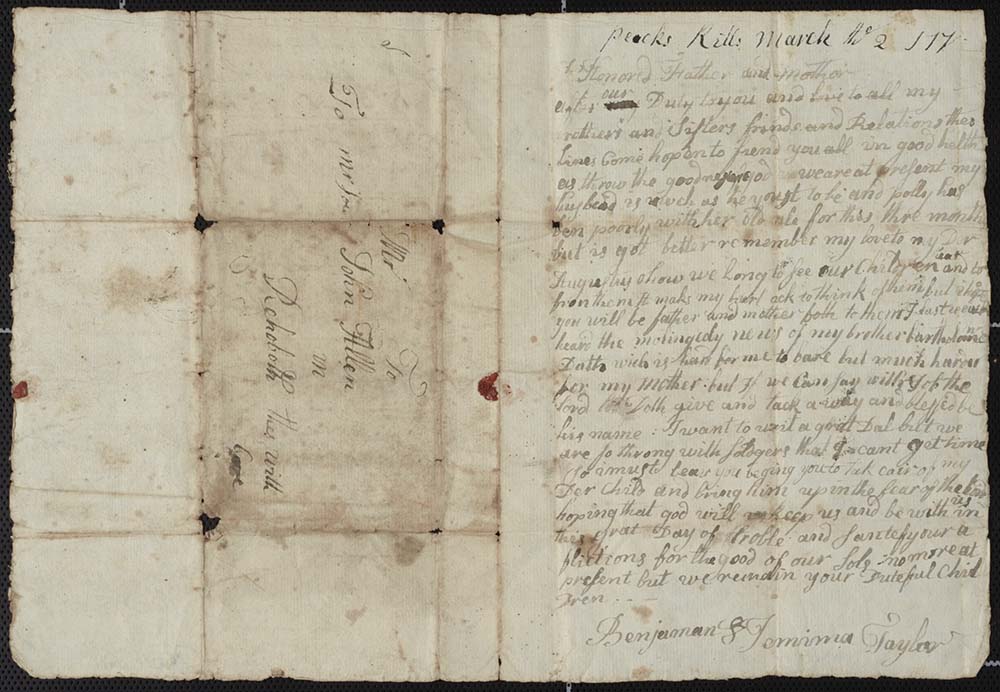 Peecks Kills March the 2 177
Honored Father and mother
after our Duty to you and love to all my
brothers and Sisters frinds and Relations thes
lines Come hopen to fiend you all in good helth
as throw the goodness of god we are at present my
husbend is much as he youst to be and polly has
ben poorly with her old ale for this thre month
but is got better remember my love to my Der
how we long to see our Children and to hear
from them it maks my hart ack to think of them but I hope
you will be father and mother both to them I last
heard the news of my brother Bartholomew
Dath wich is hard for me to bare but much harder
for my Mother but If we Can say with the
lord doth give and tack a way and blessed be
his name : I want to writ a grat Dal but we
are so throng with Soldgers that I cant get time
So i must Leav you beging you to Tak cair of my
Der Child and bring him up in the fear of the lord
hoping that god will keep us and be with us in
this grat Day of troble and Santefy our a
flictions for the good of our Sols no more at
present but we remain your Duteful Chil
dren
Benjaman & Jemima Taylor
To mr
To
Mr John Allen
in
Rehoboth thes with
Care